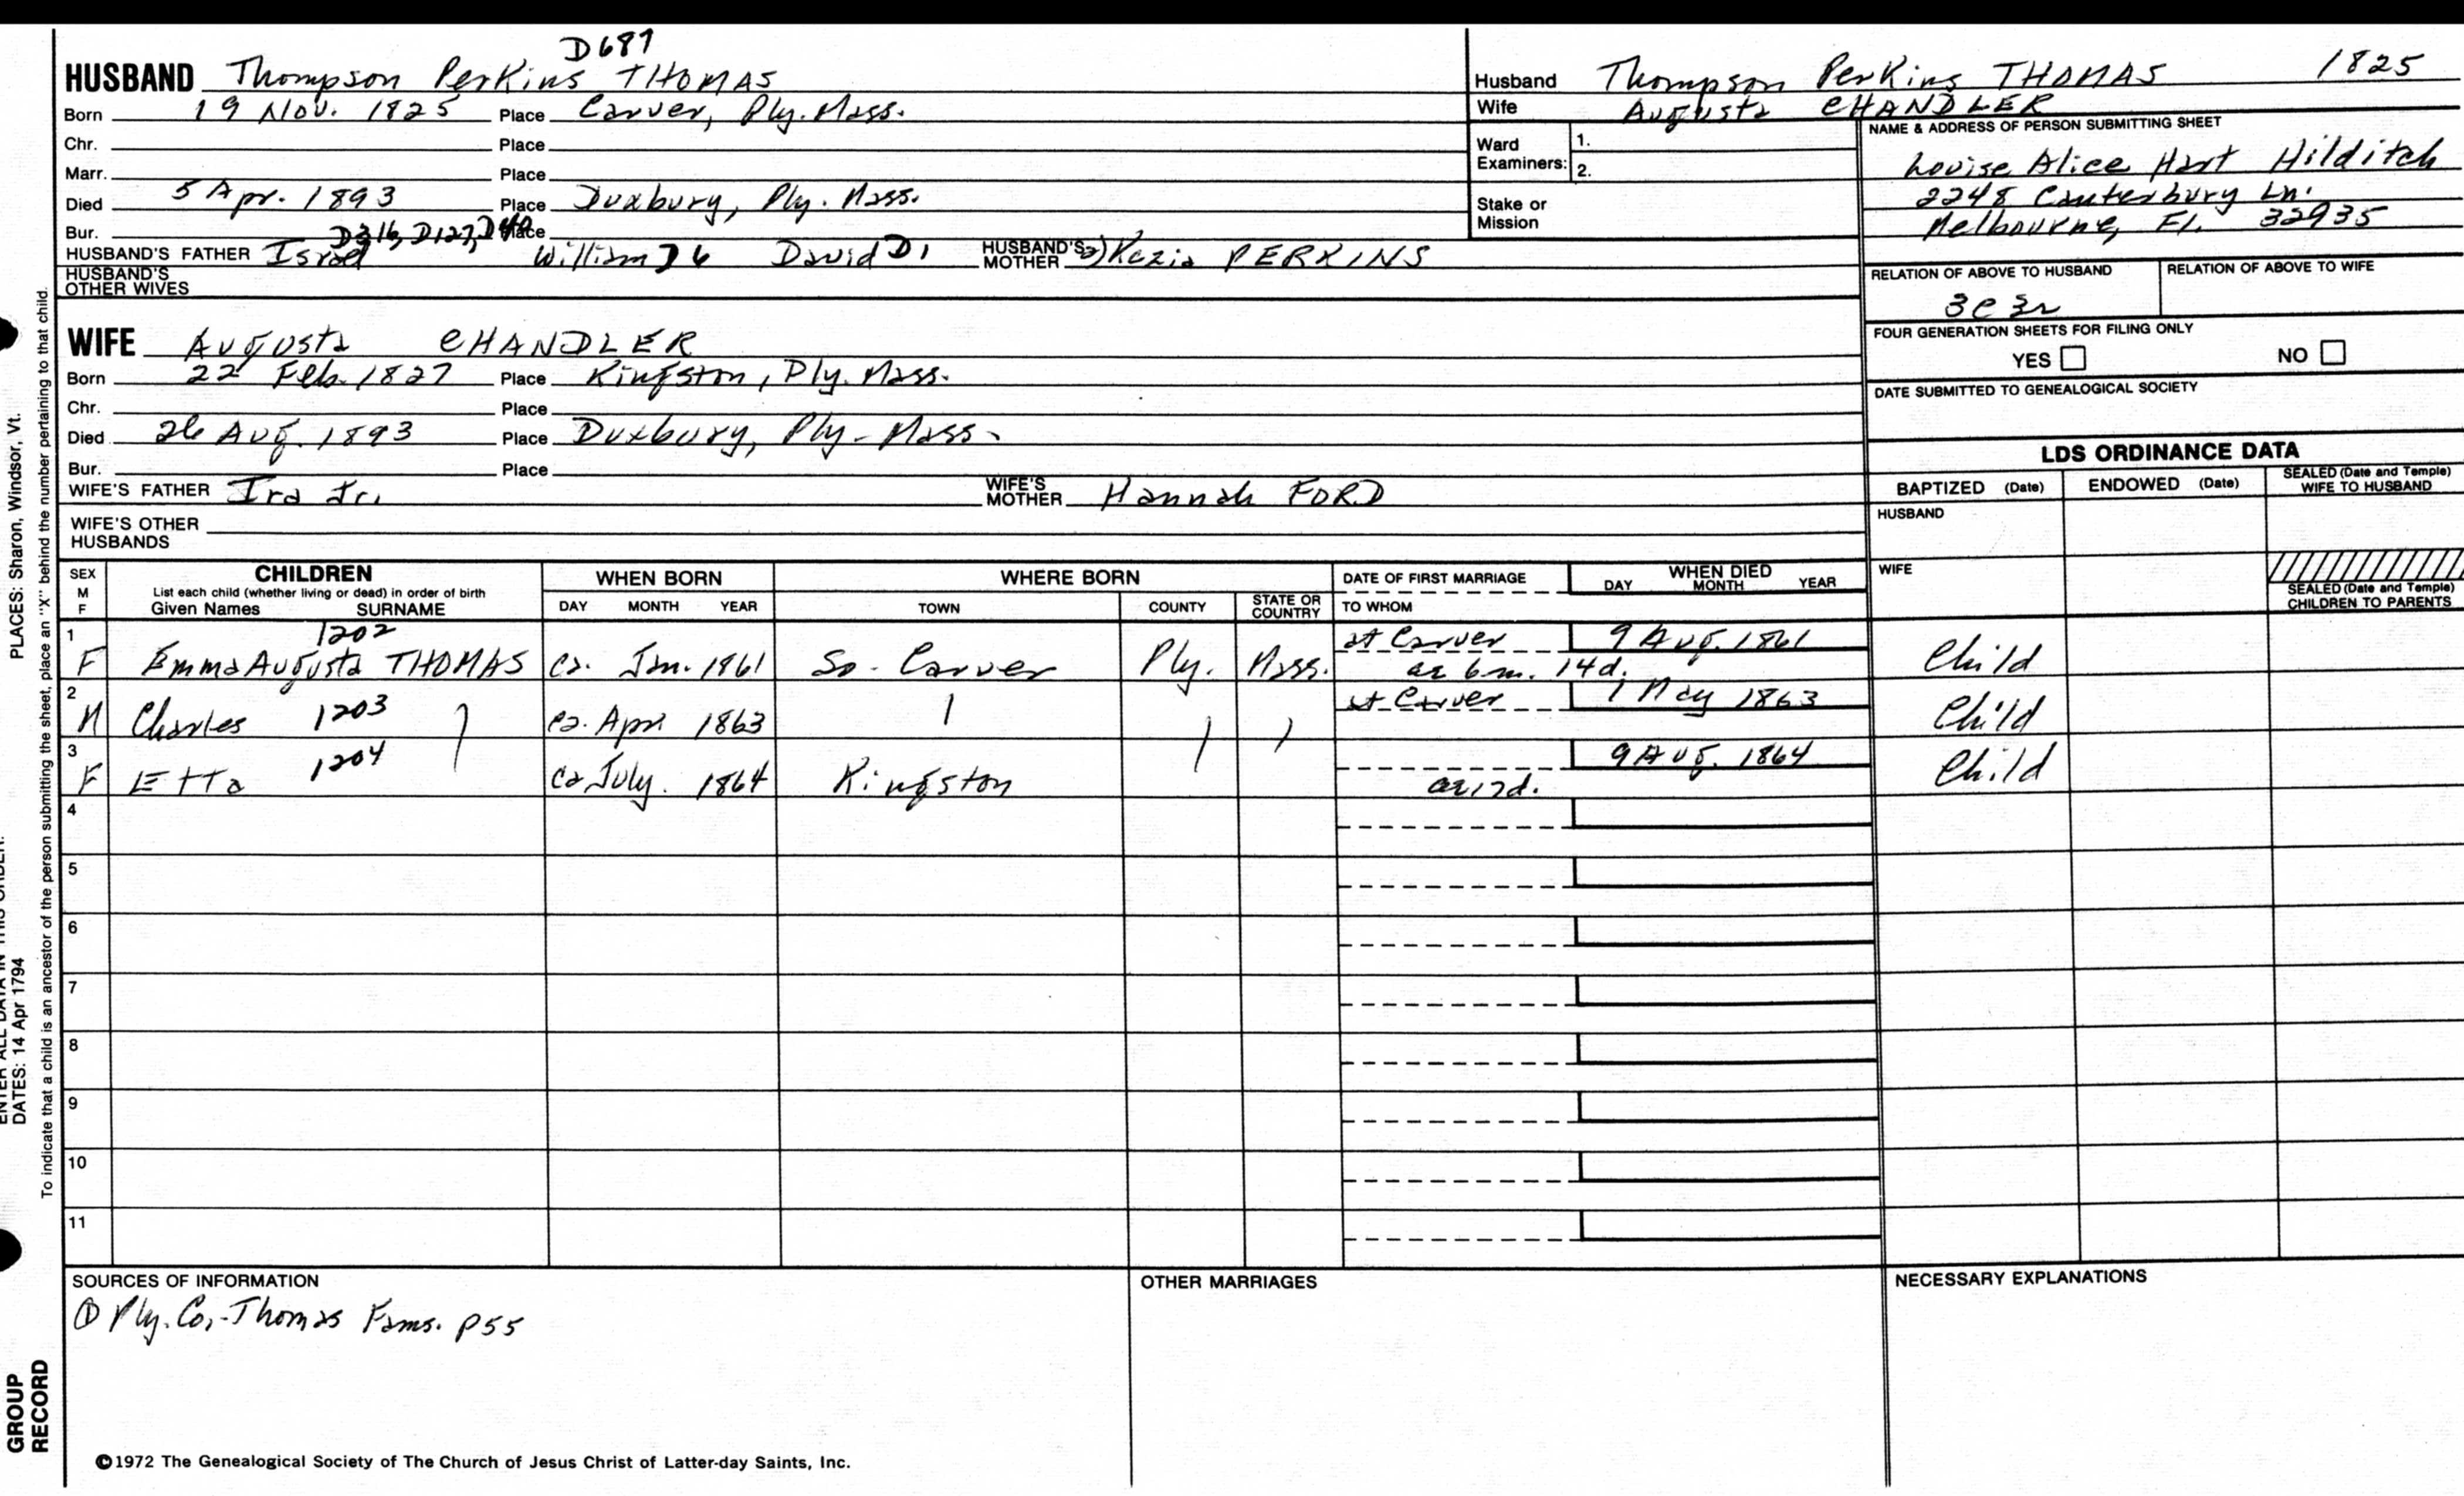 D687
HUSBAND Thompson Perkins THOMAS
Born 19 Nov. 1825 Place Carver, Ply. Mass.
Chr. Place
Marr. Place
Died 5 Apr. 1893 Place Duxbury, Ply. Mass.
Bur. Place
D316, D127, D40
HUSBAND'S FATHER Israel William D6 David D1 HUSBAND'S MOTHER 2) Kezia PERKINS
HUSBAND'S OTHER WIVES
WIFE Augusta CHANDLER
Born 22 Feb. 1827 Place Kingston, Ply. Mass.
Chr. Place
Died 26 Aug. 1893 Place Duxbury, Ply. Mass.
Bur. Place
WIFE'S FATHER Ira Jr. WIFE'S MOTHER Hannah FORD
WIFE'S OTHER HUSBANDS
Husband Thompson Perkins THOMAS 1825
Wife Augusta CHANDLER
Ward Examiners: 1.
2.
Stake or Mission
NAME & ADDRESS OF PERSON SUBMITTING SHEET
Louise Alice Hart Hilditch
2248 Canterbury Ln.
Melbourne, Fl. 32935
RELATION OF ABOVE TO HUSBAND RELATION OF ABOVE TO WIFE
3c3r
FOUR GENERATION SHEETS FOR FILING ONLY
YES NO
DATE SUBMITTED TO GENEALOGICAL SOCIETY
LDS ORDINANCE DATA
BAPTIZED (Date) ENDOWED (Date) SEALED (Date and Temple) WIFE TO HUSBAND
HUSBAND
WIFE
SEALED (Date and Temple) CHILDREN TO PARENTS
SEX M F CHILDREN WHEN BORN WHERE BORN DATE OF FIRST MARRIAGE WHEN DIED
List each child (whether living or dead) in order of birth
Given Names SURNAME DAY MONTH YEAR TOWN COUNTY STATE OR COUNTRY TO WHOM DAY MONTH YEAR
1 1202 at Carver 9 Aug. 1861
F Emma Augusta THOMAS ca. Jan. 1861 So. Carver Ply. Mass. ae 6m. 14d. Child
2 at Carver 1 May 1863
M Charles 1203 ca. Apr. 1863 Child
3 1204 9 Aug. 1864
F Etta ca July. 1864 Kingston ae 17d. Child
4
5
6
7
8
9
10
11
SOURCES OF INFORMATION OTHER MARRIAGES NECESSARY EXPLANATIONS
① Ply. Co.-Thomas Fams. p55
©1972 The Genealogical Society of The Church of Jesus Christ of Latter-day Saints, Inc.
PLACES: Sharon, Windsor, Vt.
To indicate that a child is an ancestor of the person submitting the sheet, place an "X" behind the number pertaining to that child.
ENTER ALL DATA IN THIS ORDER:
DATES: 14 Apr 1794
GROUP
RECORD